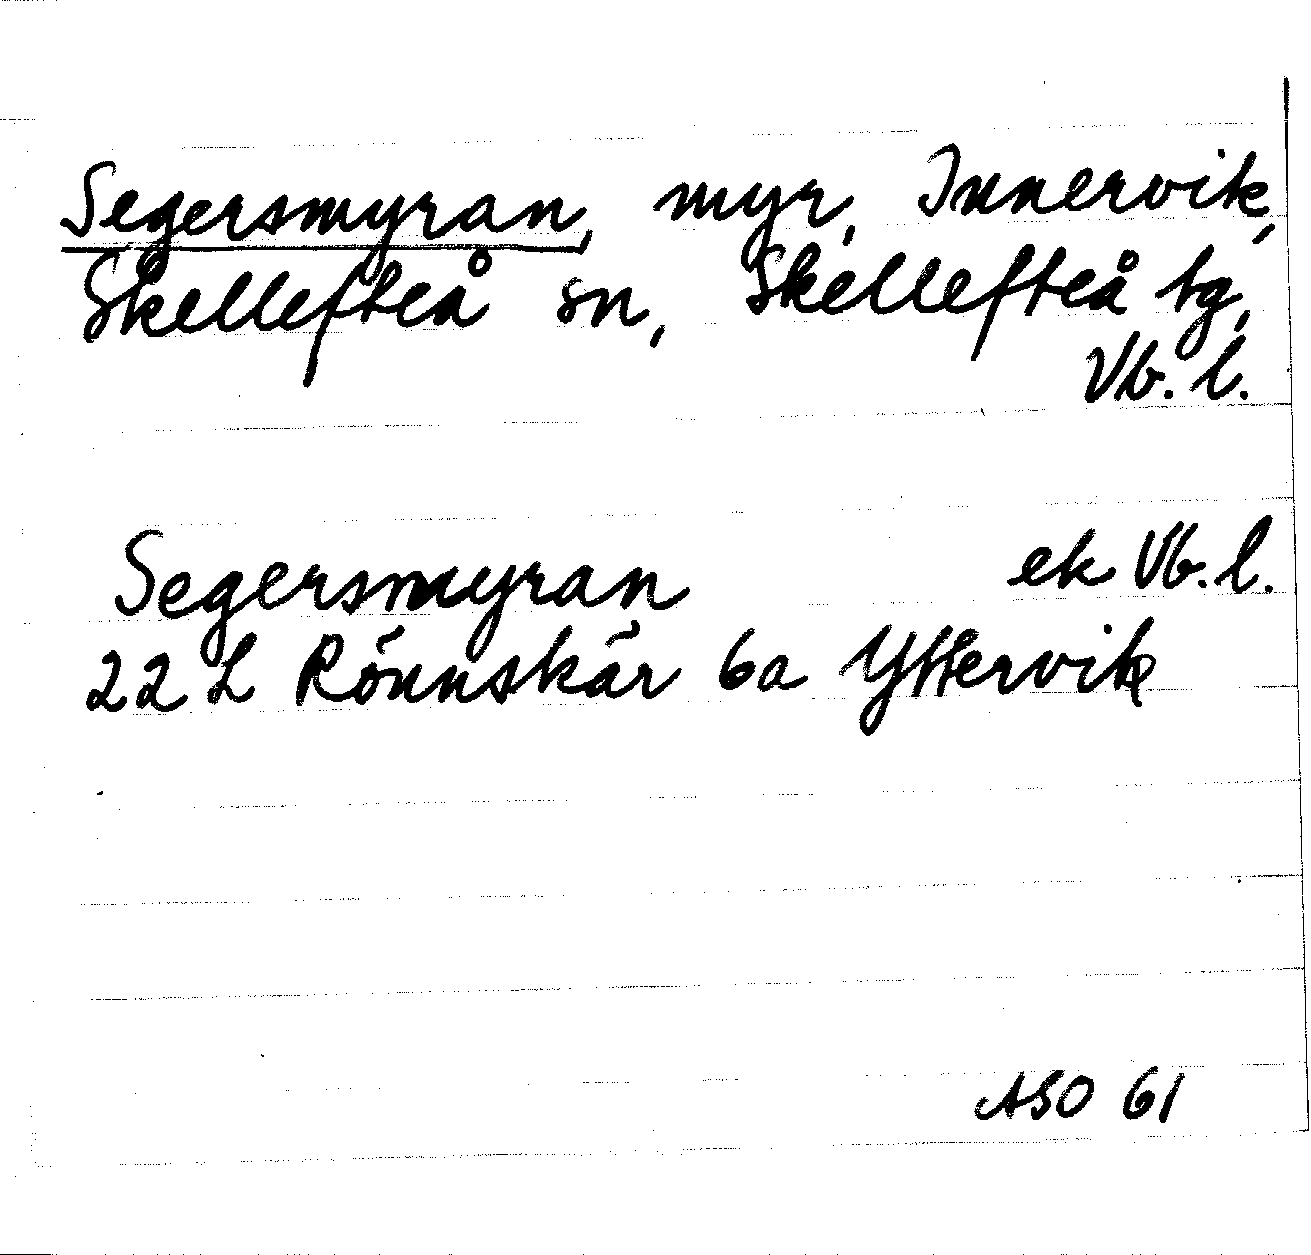 Segersmyran, myr, Innervik,
Skellefteå sn, Skellefteå tg,
Vb. l.
Segersmyran ek Vb. l.
22 L Rönnskär 6a Yttervik
ASO 61